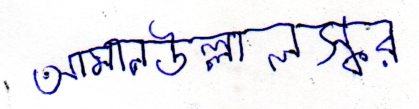 আমানউল্লা লস্কর